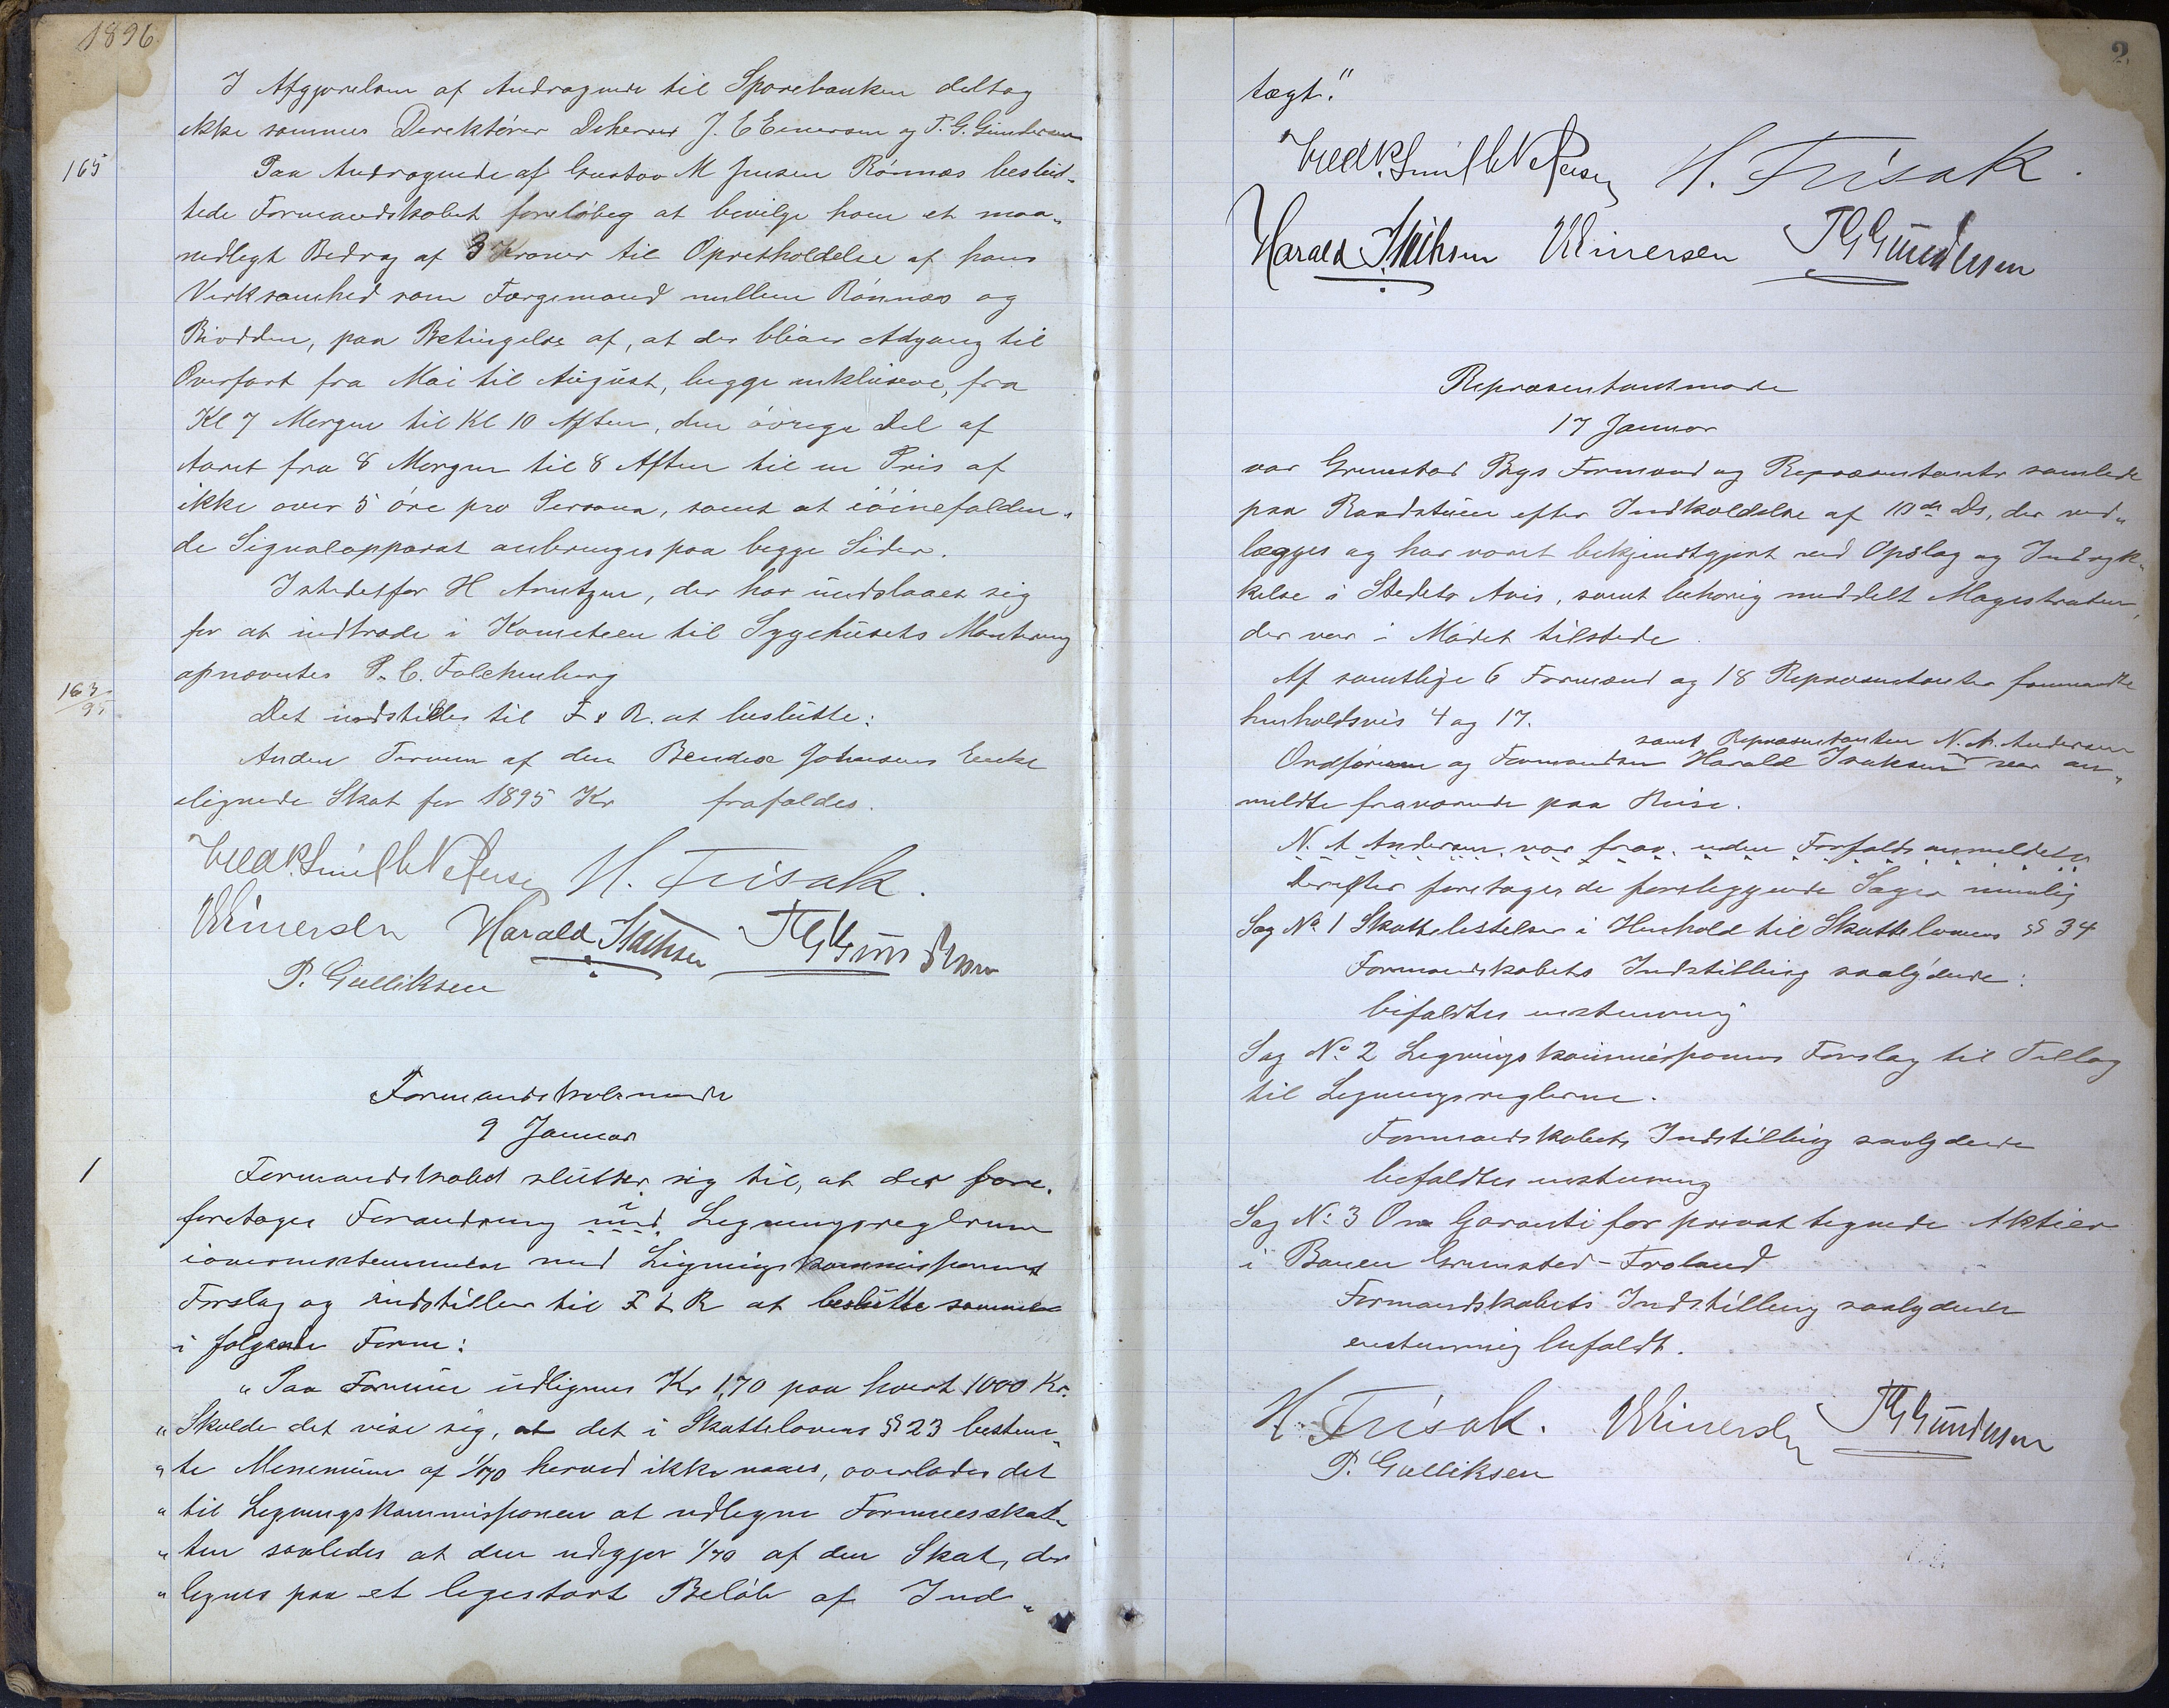 1896
I Afgjørelsen af Andragende til Sparebanken deltog
ikke sammes Direktører Dherrer J. E Einersen og T. G. Gundersen
165
Paa Andragende af Gustav M Jensen Rønnæs beslut-
tede Formandskabet foreløbig at bevilge ham et maa„
nedligt Bidrag af 3 Kroner til Opretholdelse af hans
Virksomhed som Færgemand mellem Rønnæs og
Biodden, paa Betingelse af, at der bliver Adgang til
Overfart fra Mai til August, begge inklusive, fra
Kl 7 Morgen til Kl 10 Aften, den øvrige Del af
Aaret fra 8 Morgen til 8 Aften til en Pris af
ikke over 5 øre pro Persona, samt at iøinefalden„
de Signalapparat anbringes paa begge Sider.
Istedetfor H Arntzen, der har undslaaet sig
for at indtræde i Komiteen til Sygehusets Montering
opnævntes P. C. Falckenberg
163
95
Det indstilles til F & R. at beslutte:
Anden Termin af den Bendix Johnsens Enke
ilignede Skat for 1895 Kr frafaldes.
Fredk. Smith Petersen H. Frisak.
JEEinersen Harald Isachsen TGGundersen
P. Gulliksen
Formandskabsmøde
9 Januar
1
Formandskabet slutter sig til, at der fore.
foretages Forandring i Ligningsreglerne
i overensstemmelse med Ligningskommissionens
Forslag og indstiller til F & R at beslutte samme
i følgende Form:
„ Paa Formue udlignes Kr 1,70 paa hvert 1000 Kr.
„ Skulde det vise sig, at det i Skattelovens § 23 bestem„
„ te Minimum af 1/70 herved ikke naaes, overlades det
„ til Ligningskommissionen at udligne Formuesskat„
„ ten saaledes at den udgjør 1/70 af den Skat, der
„ lignes paa et ligestort Beløb af Ind„
2.
tægt."
Fredk. Smith Petersen H. Frisak.
Harald Isachsen JEEinersen TGGundersen
Repræsentantmøde
17 Januar
var Grimstad Bys Formænd og Repræsentanter samlede
paa Raadstuen efter Indkaldelse af 10de Ds, der ved„
lægges og har været bekjendtgjort ved Opslag og Indryk„
kelse i Stedets Avis, samt behørig meddelt Magistraten,
der var i Mødet tilstede.
Af samtlige 6 Formænd og 18 Repræsentanter fremmødte
henholdsvis 4 og 17.
samt Repræsentanten N. A. Andersen
Ordføreren og Formanden Harald Isaksen var an„
meldte fraværende paa Reise.
N. A Andersen var frav. uden Forfalds anmeldelse
Derefter foretages de foreliggende Sager nemlig
Sag No 1 Skattelistelser i Henhold til Skattelovens § 34
Formandskabets Indstilling saalydende:
bifaldtes enstemmig
Sag No. 2 Ligningskommissionens Forslag til Tillæg
til Ligningsreglerne.
Formandskabets Indstilling saalydende
bifaldtes enstemmig
Sag No. 3 Om Garanti for privat tegnede Aktier
i Banen Grimstad-Froland
Formandskabets Indstilling saalydende
enstemmig bifaldt.
H. Frisak. JEEinersen TGGundersen
P. Gulliksen